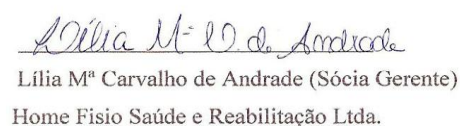 Lília Mª C. de Andrade
Lília Mª Carvalho de Andrade (Sócia Gerente)
Home Fisio Saúde e Reabilitação Ltda.